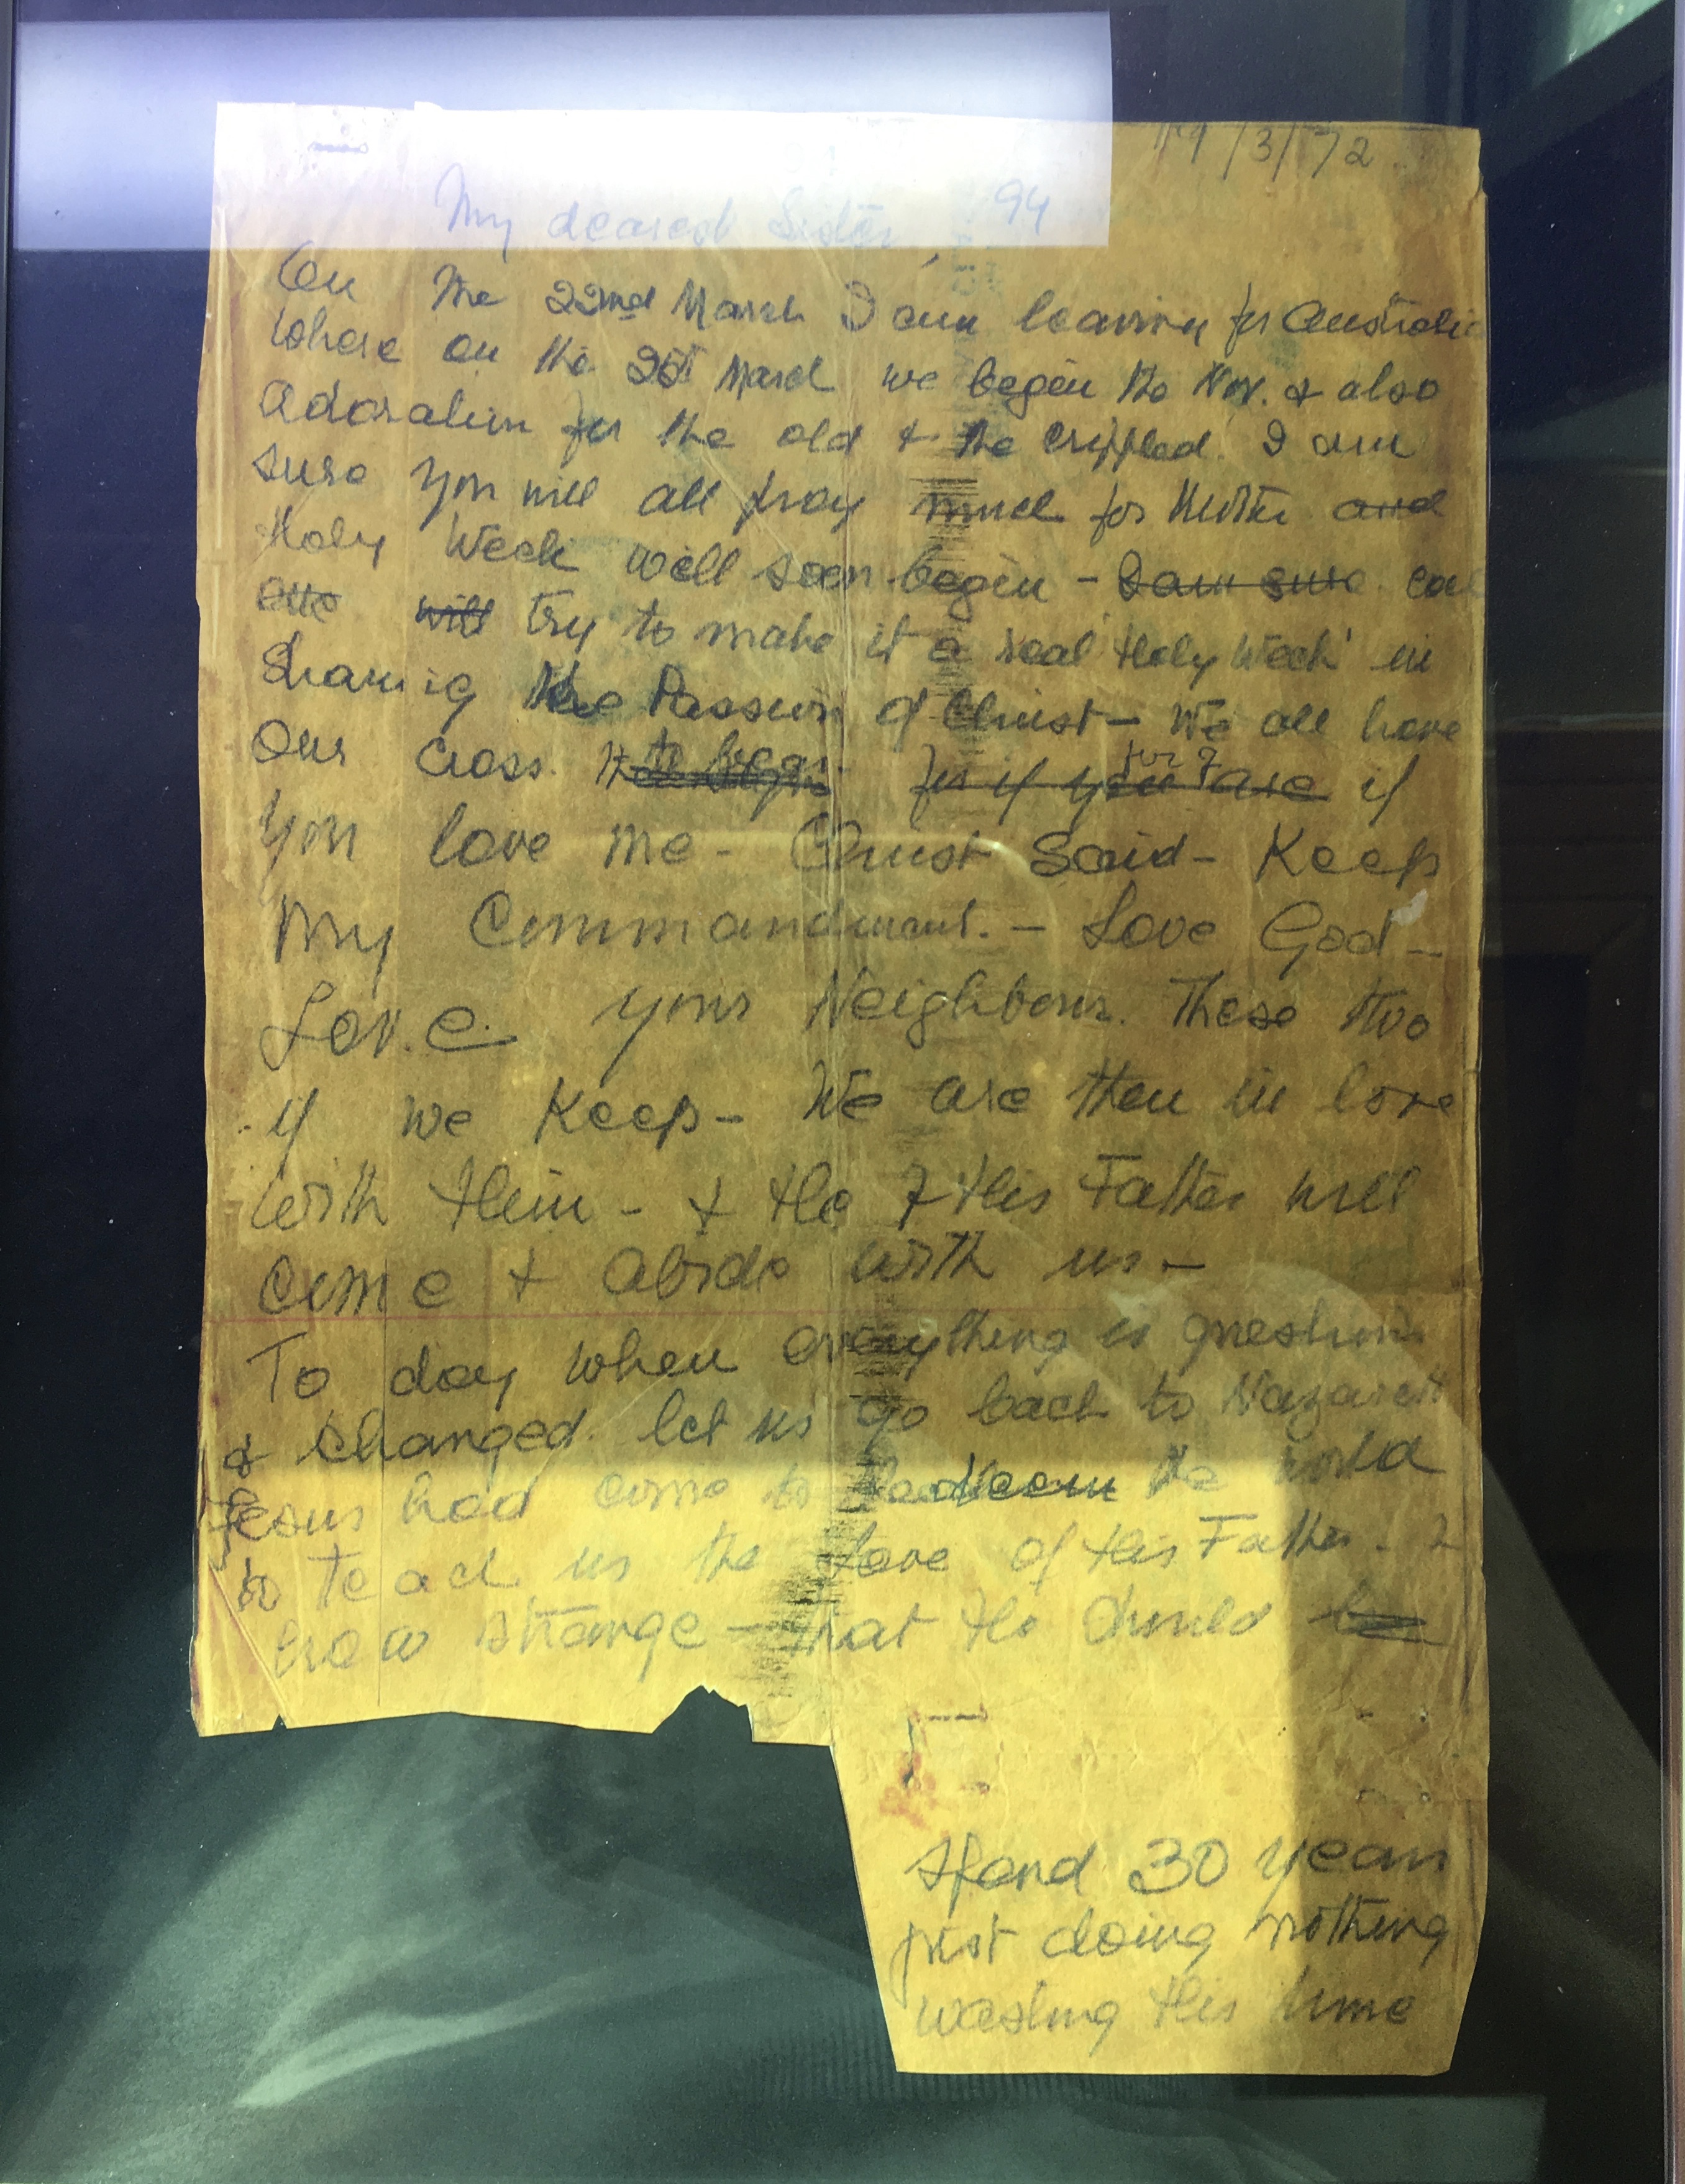 19/3/72
94
My dearest Sister,
On the 22nd March I am leaving for Australia
where on the 25th March we begin the Nov. & also
Adoration for the old & the crippled. I am
sure you will all pray much for Mother and
Holy Week will soon begin - I am sure
will try to make it a real 'Holy Week' in
Sharing the Passion of Christ - We all have
our Cross. for if you are if
you love me - Christ Said - Keep
My Commandment. - Love God -
Love your Neighbour. These two
if we Keep - We are then in love
with Him - & He & His Father will
come & abide with us -
To day when everything is question
& changed. let us go back to Nazareth
Jesus had come to Redeem the world
to teach us the Love of His Father.
how strange - that He should
spend 30 years
just doing nothing
wasting His time